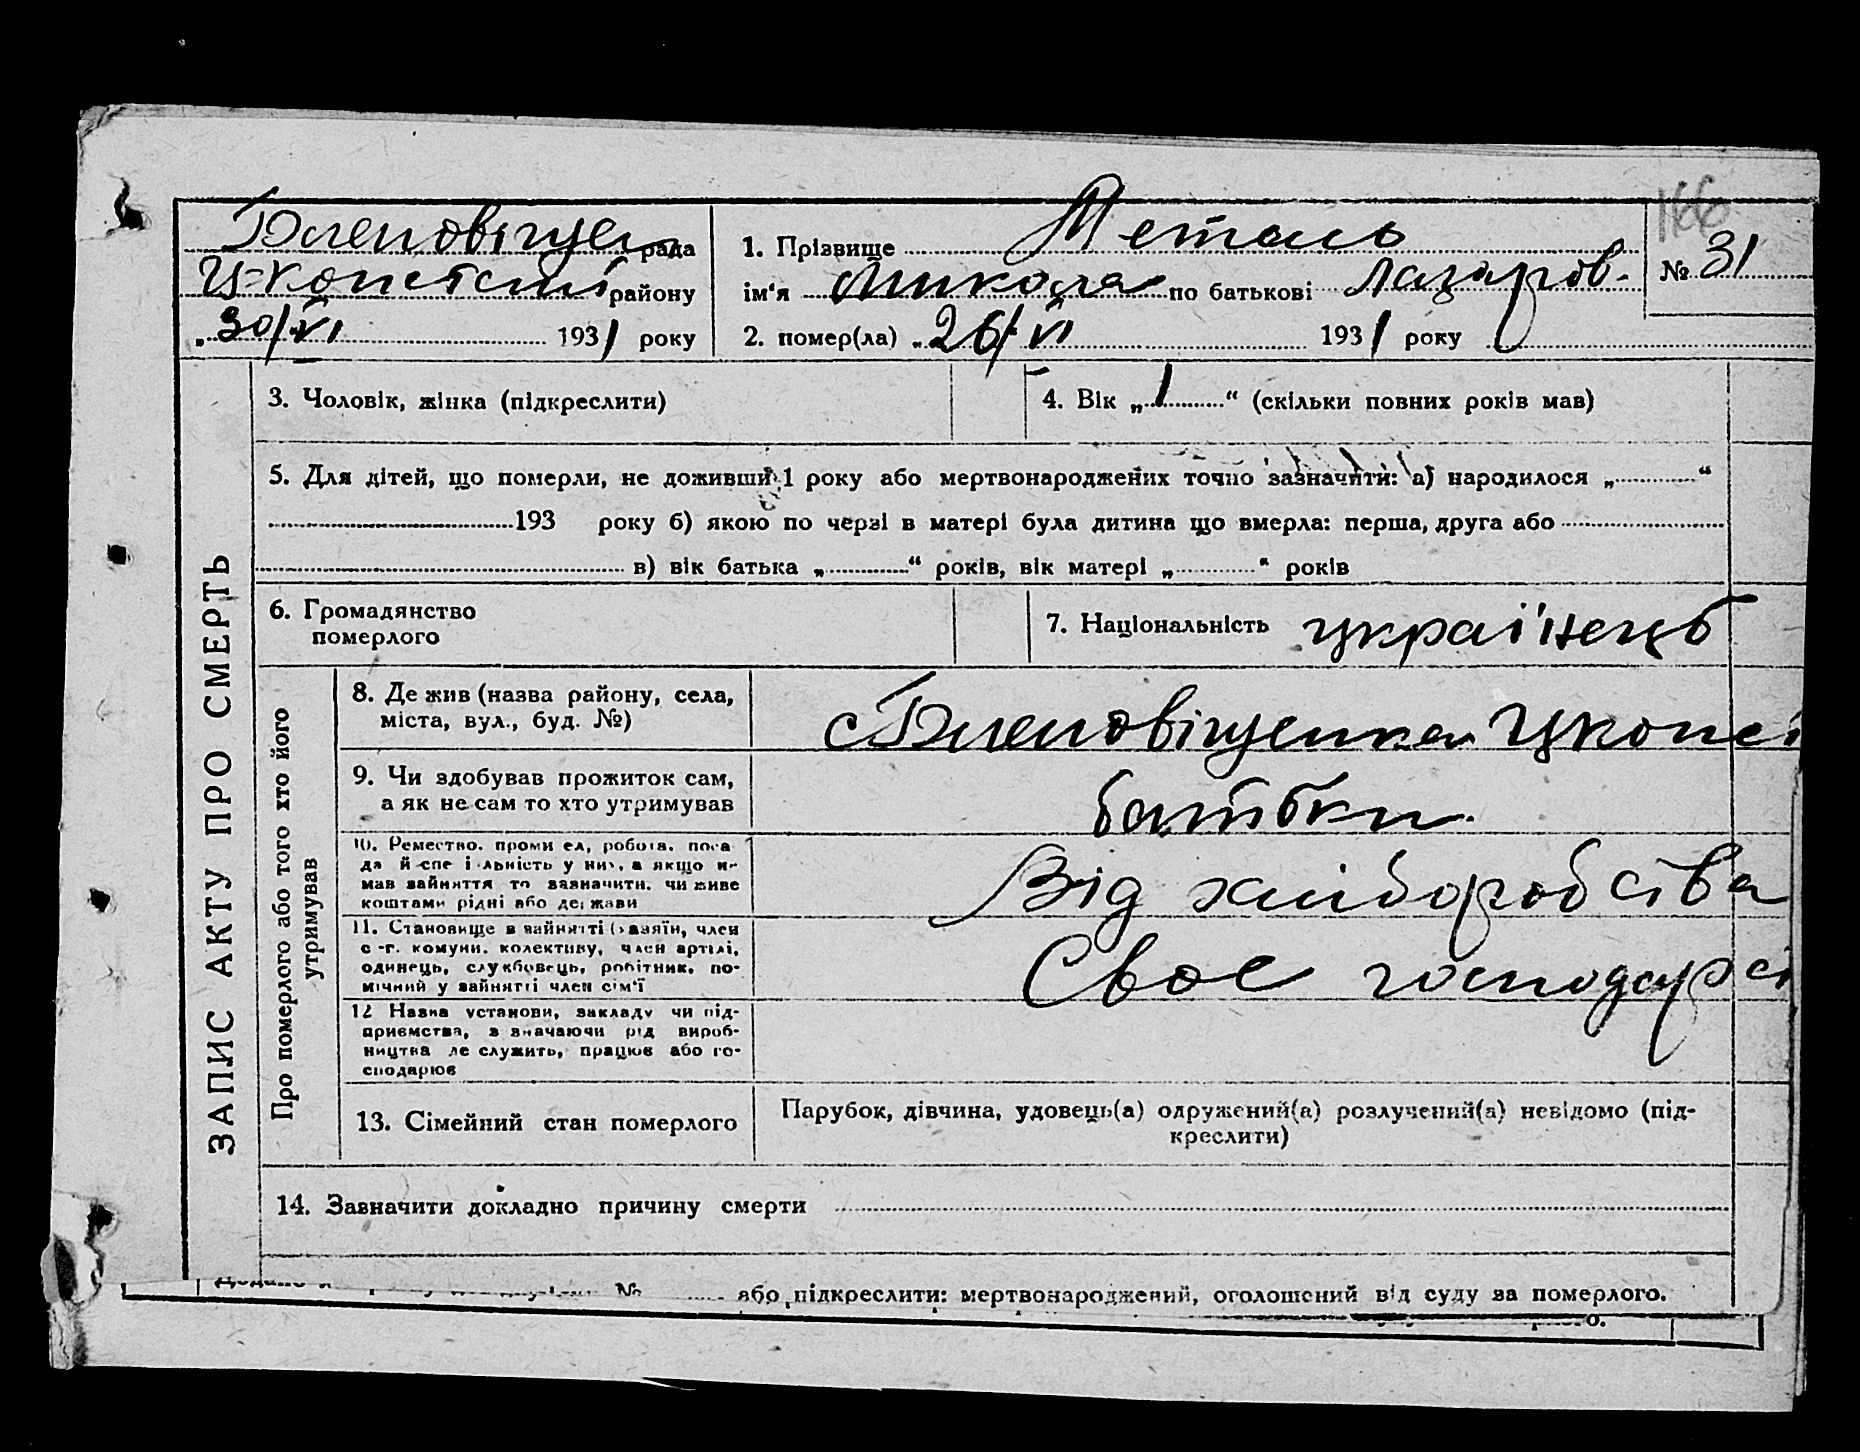 166
Благовіщен рада
Ц-Копистсій району
„30/VI 1931 року
1. Прізвище Металь
ім'я Микола по батькові Лазаров.
2. помер(ла) „26/VI 1931 року
№ 31
ЗАПИС АКТУ ПРО СМЕРТЬ
3. Чоловік, жінка (підкреслити)
4. Вік „1“ (скільки повних років мав)
5. Для дітей, що померли, не доживши 1 року або мертвонароджених точно зазначити: а) народилося „ “
193 року б) якою по черзі в матері була дитина що вмерла: перша, друга або
в) вік батька „ “ років, вік матері „ “ років
6. Громадянство
померлого
7. Національність українець
Про померлого або того хто його
утримував
8. Де жив (назва району, села,
міста, вул., буд. №)
с Благовіщенка
9. Чи здобував прожиток сам,
а як не сам то хто утримував
батьки.
10. Ремество, промисел, робота, поса
да й спеціяльність у них, а якщо не
мав зайняття то зазначити, чи живе
коштами рідні або держави
Від хліборобства
11. Становище в зайнятті (хазяїн, член
с.-г. комуни, колективу, член артілі,
одинець, службовець, робітник, по-
мічний у зайнятті член сім'ї
Своє господарс
12 Назва установи, закладу чи під-
приємства, зазначаючи рід вироб-
ництва де служить, працює або го-
сподарює
13. Сімейний стан померлого
Парубок, дівчина, удовець(а) одружений(а) розлучений(а) невідомо (під-
креслити)
14. Зазначити докладно причину смерти
№ або підкреслити: мертвонароджений, оголошений від суду за померлого.